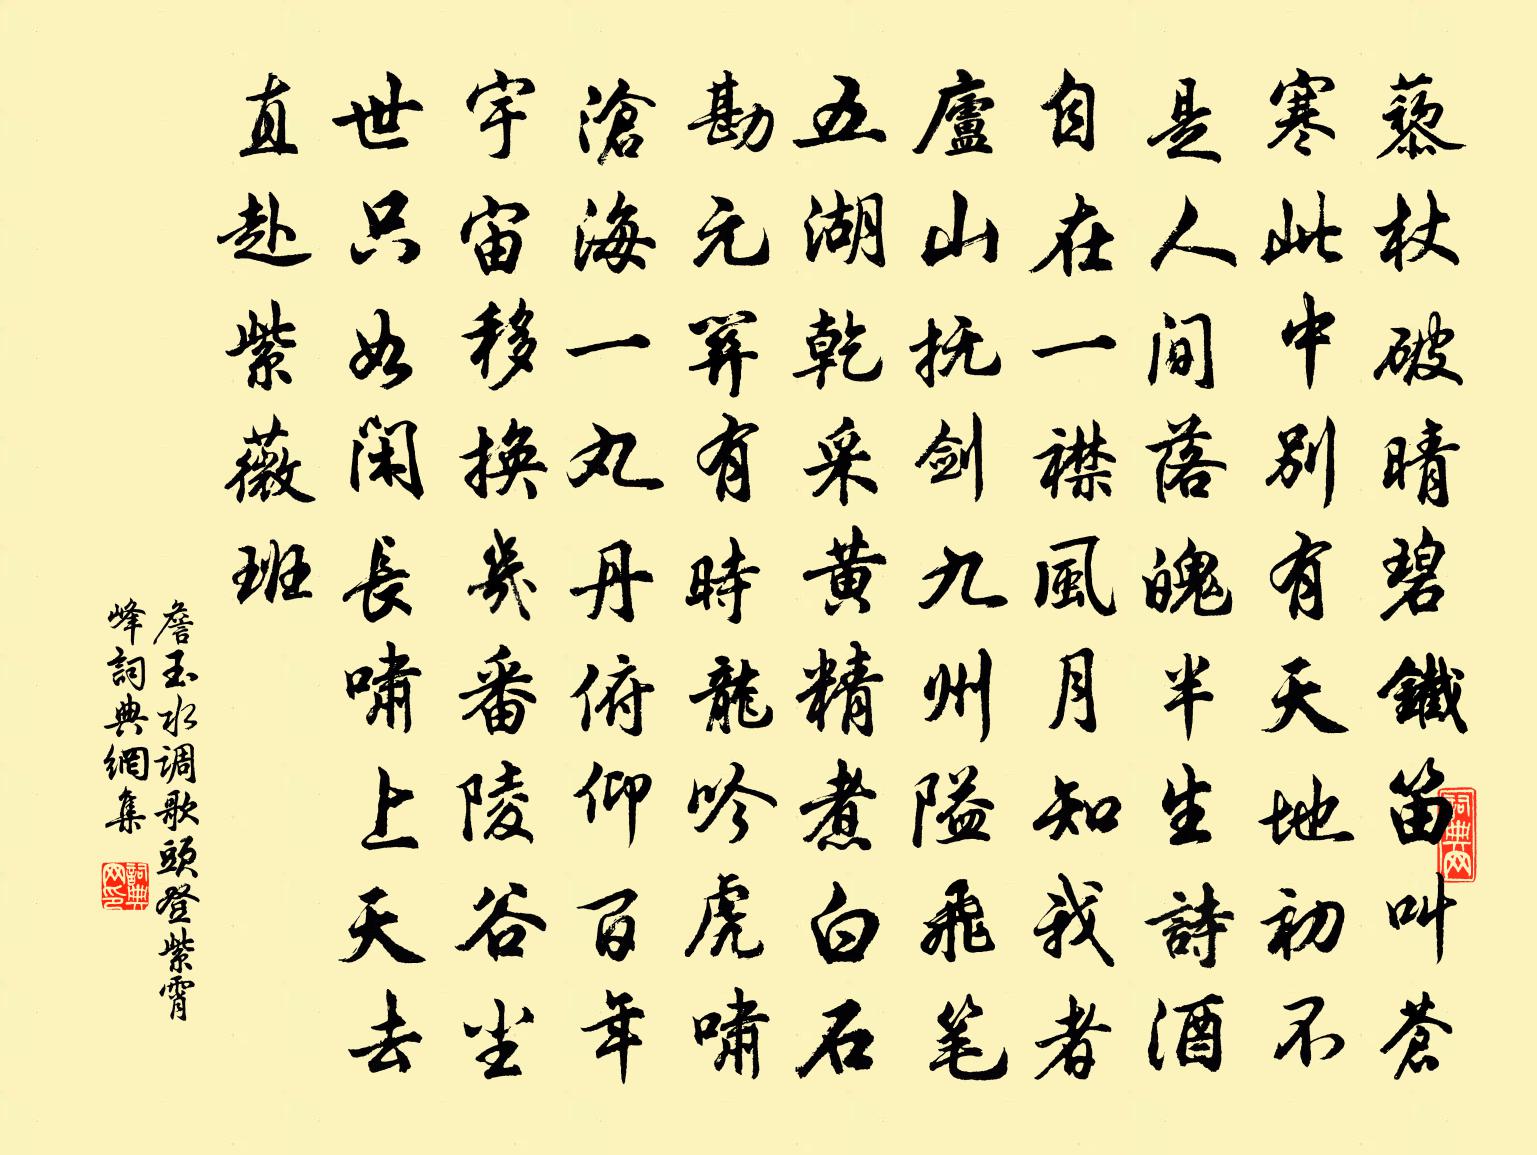 藜杖破晴碧鐵笛叫蒼
寒此中別有天地初不
是人间落魄半生詩酒
自在一襟風月知我者
廬山抚剑九州隘飛笔
五湖乾采黄精煮白石
勘元关有時龍吟虎嘯
滄海一丸丹俯仰百年
宇宙移换幾番陵谷尘
世只如闲長嘯上天去
直赴紫薇班
詹玉水调歌頭登紫霄
峰詞典網集
詞典网
詞典网印